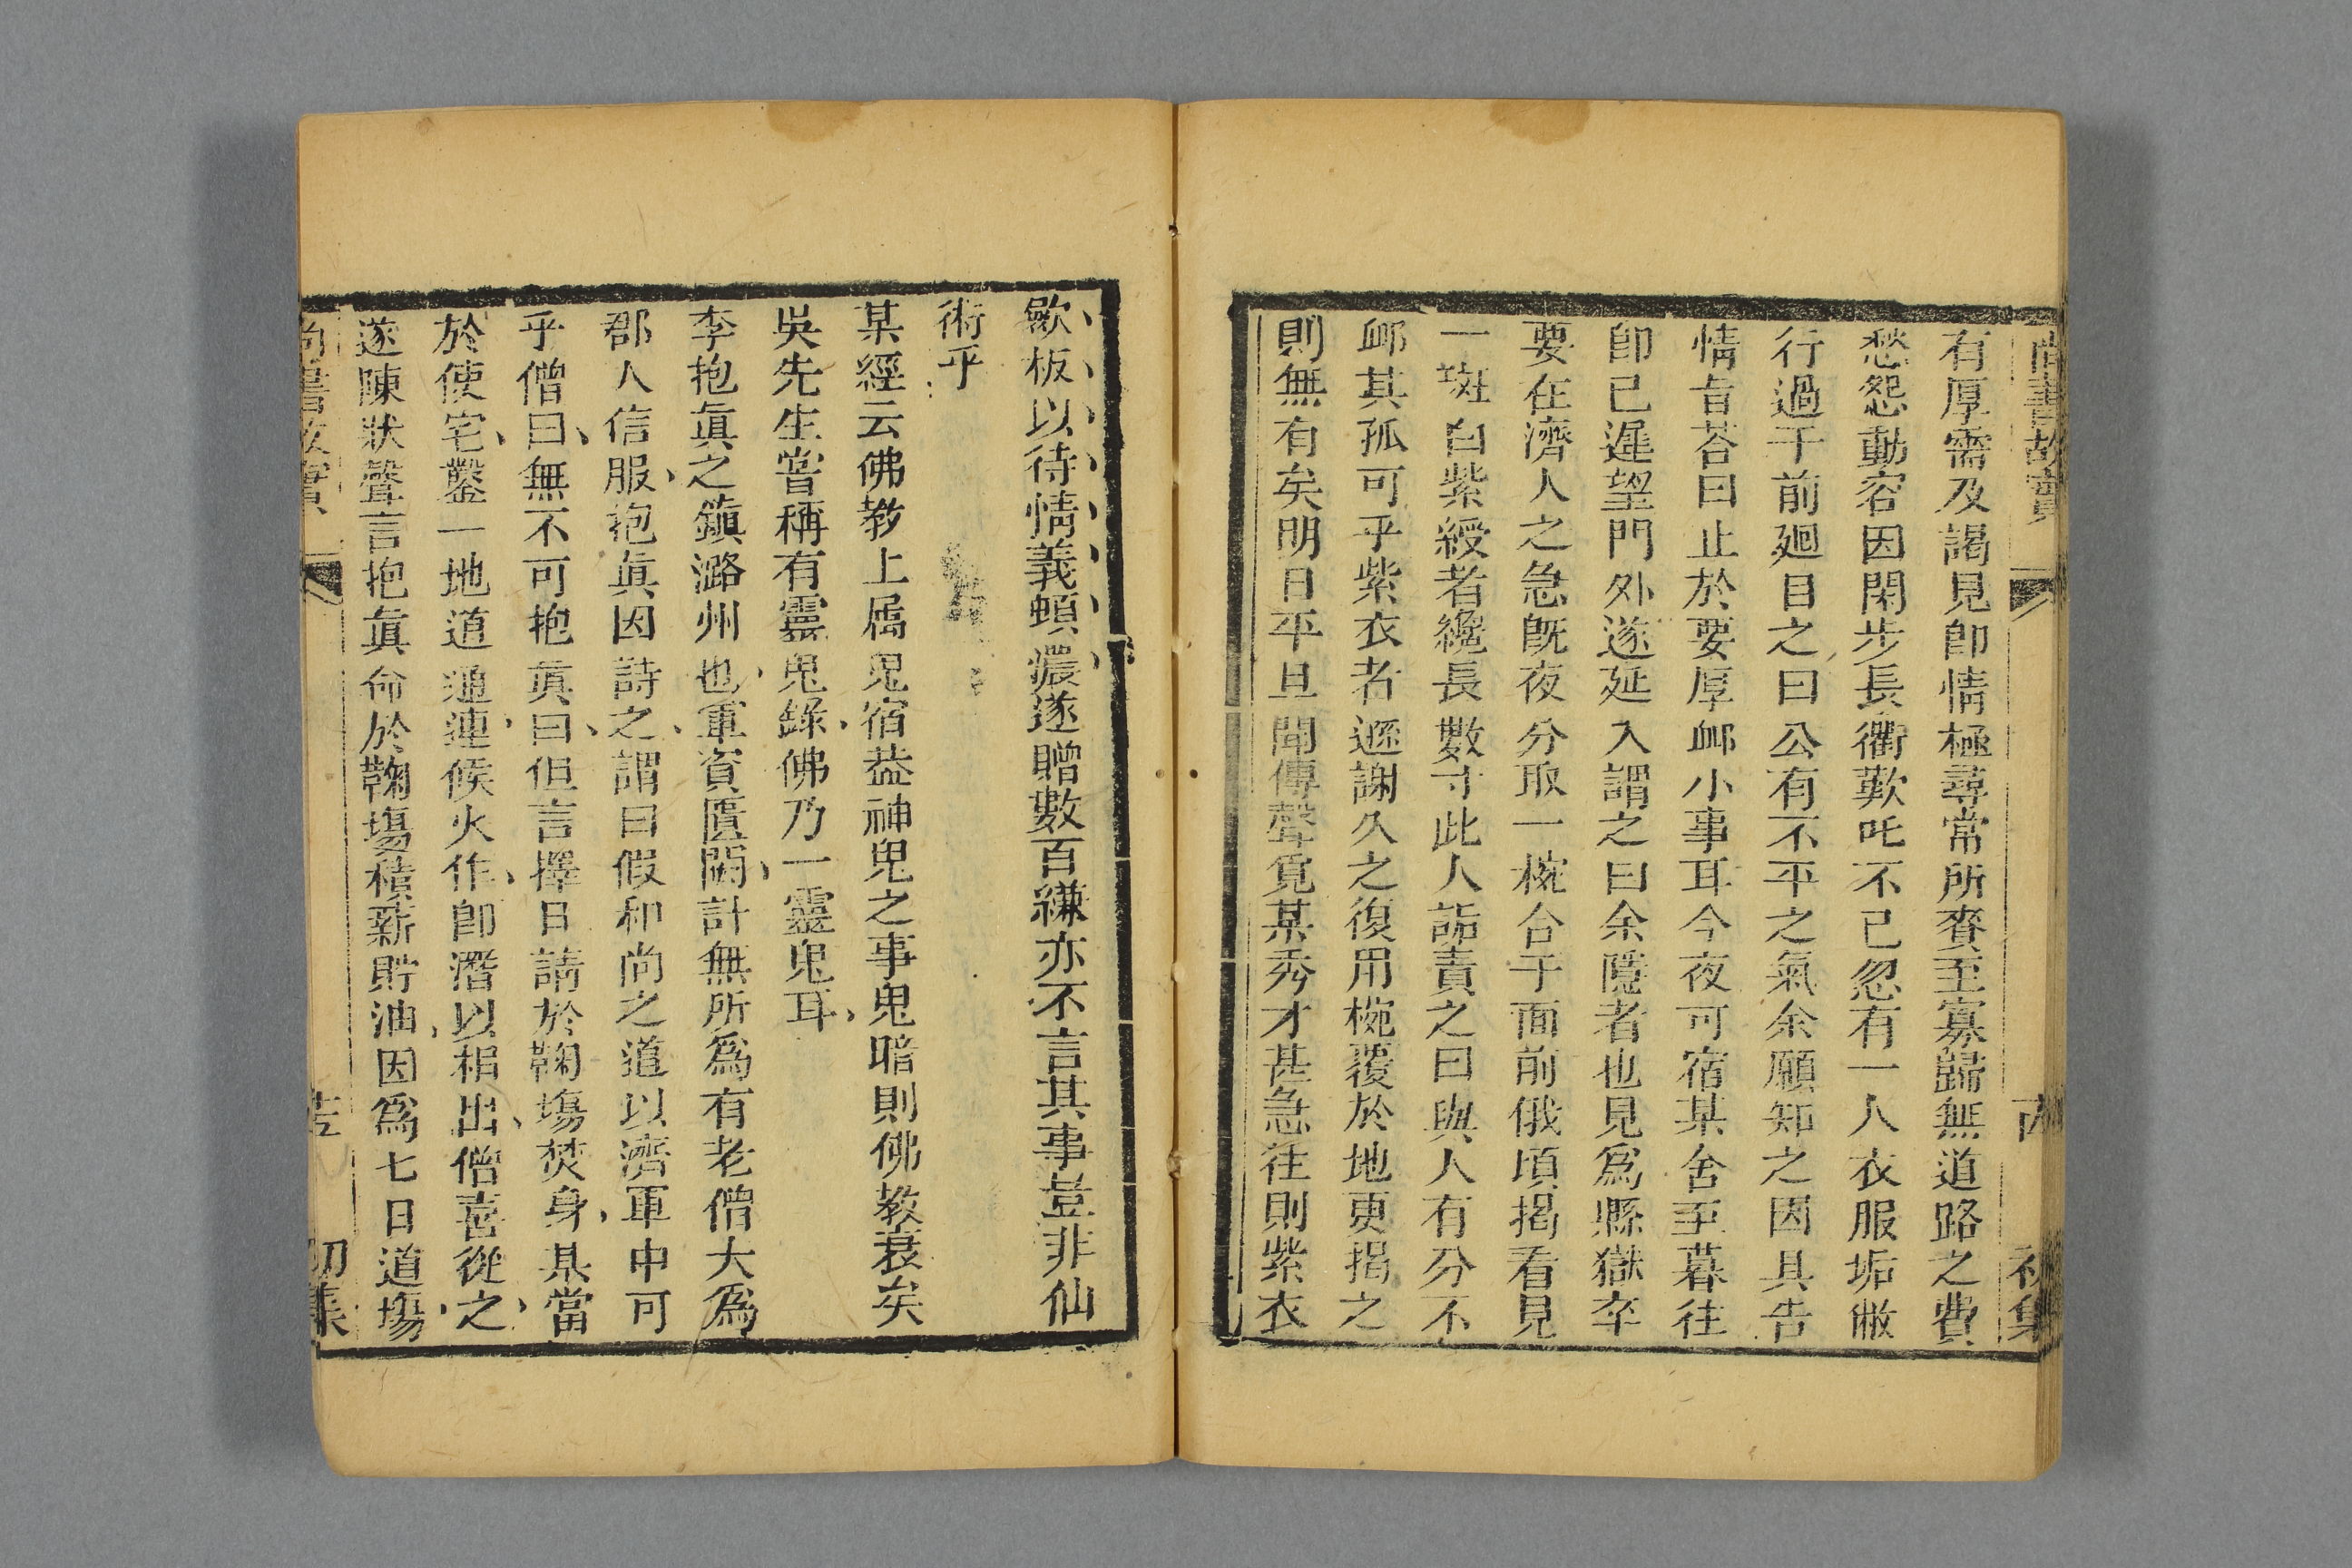 尚書故實
初集
有厚需及謁見卽情極尋常所賚至寡歸無道路之費
愁怨動容因閑步長衢歎吒不已忽有一人衣服垢敝
行過于前廻目之曰公有不平之氣余願知之因具告
情旨荅曰止於要厚䘏小事耳今夜可宿某舍至暮往
卽已遲望門外遂延入謂之曰余隱者也見爲縣獄卒
要在濟人之急旣夜分取一椀合于面前俄頃揭看見
一斑白紫綬者纔長數寸此人詬責之曰與人有分不
䘏其孤可乎紫衣者遜謝久之復用椀覆於地更揭之
則無有矣明日平旦聞傳聲覓某秀才甚急往則紫衣
歛板以待情義頓濃遂贈數百縑亦不言其事豈非仙
術乎
某經云佛教上属鬼宿葢神鬼之事鬼暗則佛教衰矣
吳先生嘗稱有靈鬼錄佛乃一靈鬼耳
李抱眞之鎭潞州也軍資匱闕計無所爲有老僧大爲
郡人信服抱眞因詩之謂曰假和尚之道以濟軍中可
乎僧曰無不可抱眞曰但言擇日請於鞠塲焚身某當
於使宅鑿一地道通連候火作卽潛以相出僧喜從之
遂陳狀聲言抱眞命於鞠塲積薪貯油因爲七日道塲
尚書故實
初集